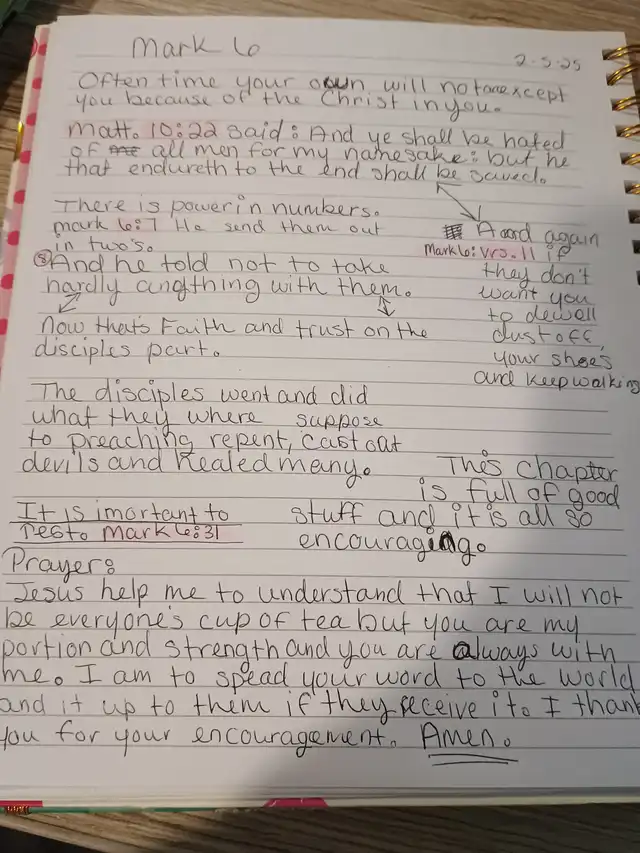 Mark 6
2-5-25
Often time your own will not except
you because of the Christ in you.
Matt. 10:22 said: And ye shall be hated
of all men for my namesake: but he
that endureth to the end shall be saved.
There is power in numbers.
mark 6:7 He send them out
in two's.
8 And he told not to take
hardly anything with them.
Now that's Faith and trust on the
disciples part.
And again
Mark 6: vrs. 11 if
they don't
want you
to dewell
dust off
your shoes
and keep walking
The disciples went and did
what they where suppose
to preaching repent, cast out
devils and healed many.
This chapter
is full of good
stuff and it is all so
encouraging.
It is imortant to
rest. Mark 6:31
Prayer:
Jesus help me to understand that I will not
be everyone's cup of tea but you are my
portion and strength and you are always with
me. I am to spead your word to the world
and it up to them if they receive it. I thank
you for your encouragement. Amen.